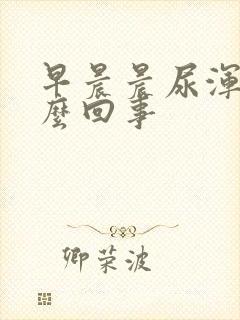 早晨晨尿渾
麼回事
卿荣波